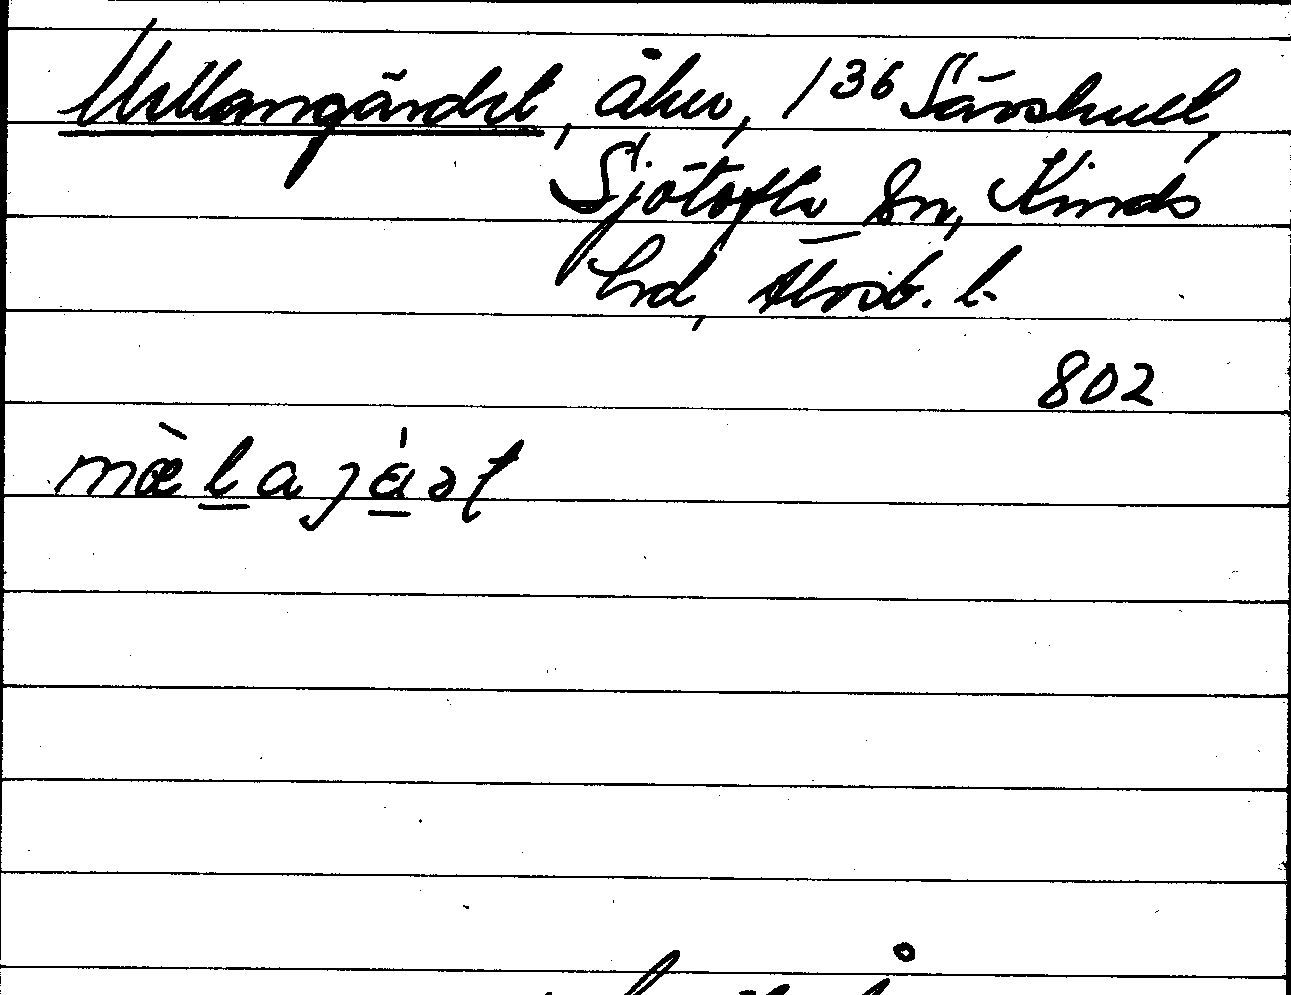 Mellangärdet, åker, 1³⁶ Särshult,
Sjötofta sn, Kinds
hd, Älvsb. l.
802
mæ̀lajɛ́ət